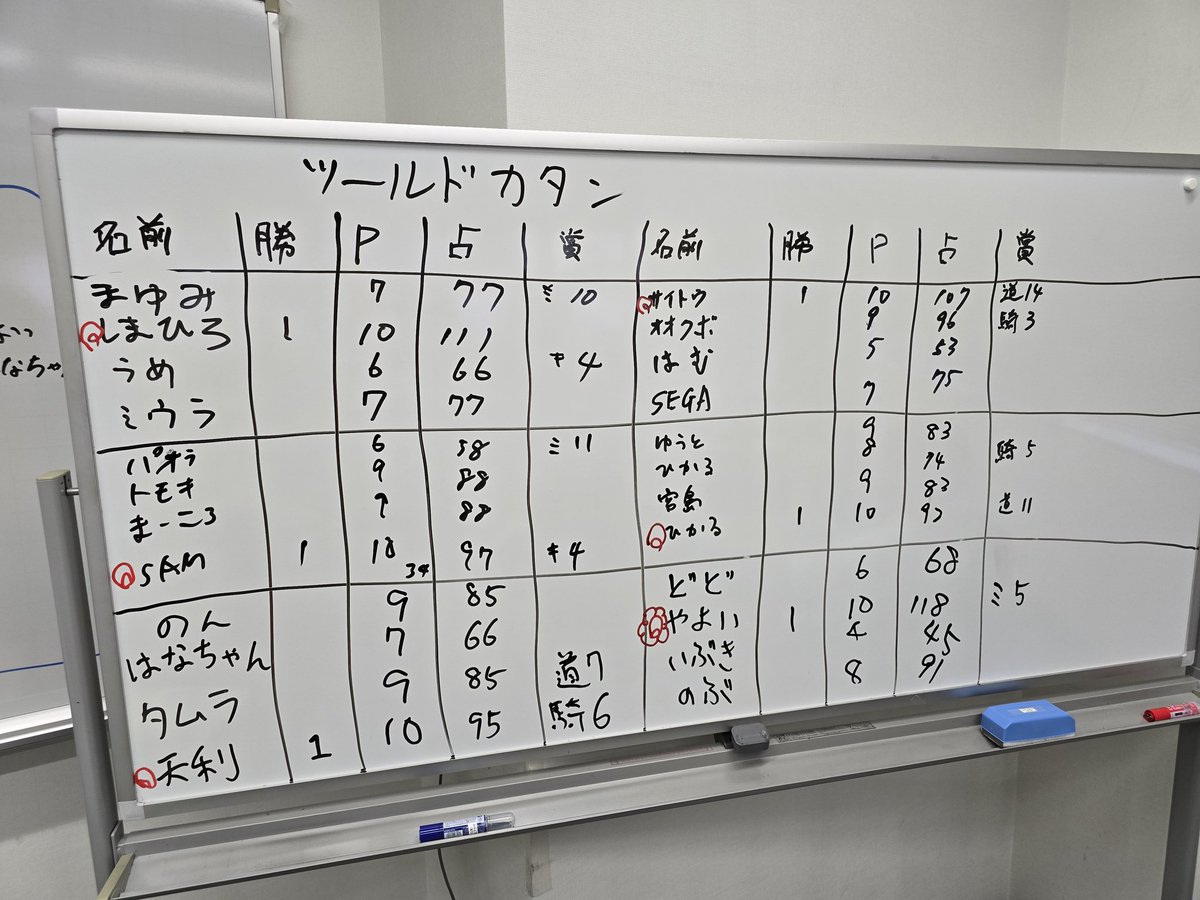 ツールドカタン
名前 勝 P 占 賞
まゆみ 7 77 ミ10
しまひろ 1 10 111
うめ 6 66 キ4
ミウラ 7 77
6 58 ミ11
トモキ 9 88
まーころ 9 88
SAM 1 10 34 97 キ4
のん 9 85
はなちゃん 7 66
タムラ 9 85 道7
天利 1 10 95 騎6
名前 勝 P 占 賞
サイトウ 1 10 107 道14
オオクボ 9 96 騎3
はむ 5 53
SEGA 7 75
ゆうと 9 83
ひかる 8 74 騎5
宮島 9 83
ひかる 1 10 93 道11
どど 6 68
やよい 1 10 118 ミ5
いぶき 4 45
のぶ 8 91